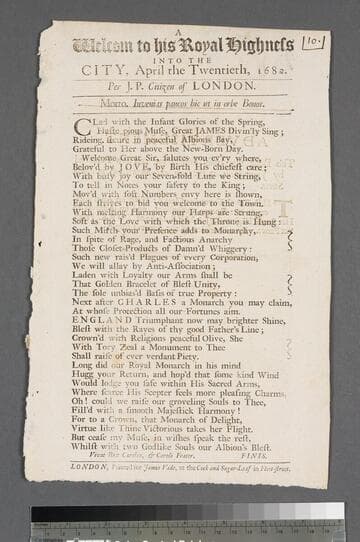 A
Welcom to his Royal Highness
10.
INTO THE
CITY, April the Twentieth, 1682.
Per J. P. Citizen of LONDON.
Motto. Invenias paucos hic ut in orbe Bonos.
CLad with the Infant Glories of the Spring,
Haste pious Muse, Great JAMES Divin'ly Sing;
Rideing, secure in peaceful Albions Bay,
Grateful to Her above the New-Born Day.
Welcome Great Sir, salutes you ev'ry where,
Belov'd by JOVE, by Birth His chiefest care;
With busy joy our Seven-fold Lute we String,
To tell in Notes your safety to the King;
Mov'd with soft Numbers envy here is shown,
Each strives to bid you welcome to the Town.
With melting Harmony our Harps are Strung,
Soft as the Love with which the Throne is Hung:
Such Mirth your Presence adds to Monarchy,
In spite of Rage, and Factious Anarchy
Those Closet-Products of Damn'd Whiggery:
Such new rais'd Plagues of every Corporation,
We will allay by Anti-Association;
Laden with Loyalty our Arms shall be
That Golden Bracelet of Blest Unity,
The sole unbias'd Basis of true Property:
Next after CHARLES a Monarch you may claim,
At whose Protection all our Fortunes aim.
ENGLAND Triumphant now may brighter Shine,
Blest with the Rayes of thy good Father's Line;
Crown'd with Religions peaceful Olive, She
With Tory Zeal a Monument to Thee
Shall raise of ever verdant Piety.
Long did our Royal Monarch in his mind
Hugg your Return, and hop'd that some kind Wind
Would lodge you safe within His Sacred Arms,
Where scarce His Scepter feels more pleasing Charms.
Oh! could we raise our groveling Souls to Thee,
Fill'd with a smooth Majestick Harmony!
For to a Crown, that Monarch of Delight,
Virtue like Thine Victorious takes her Flight.
But cease my Muse, in wishes speak the rest,
Whilst with two Godlike Souls our Albion's Blest.
Vivat Rex Carolus, & Caroli Frater. FINIS.
LONDON, Printed for James Vade, at the Cock and Sugar-Loaf in Fleet-street.